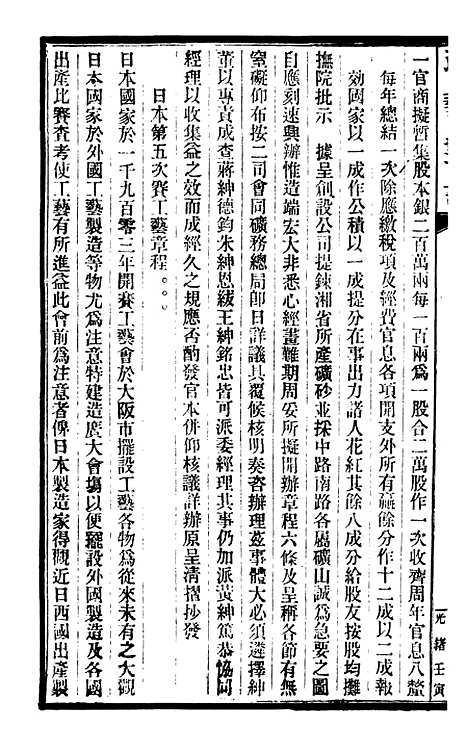 一官商擬暫集股本銀二百萬兩每一百兩爲一股合二萬股作一次收齊周年官息八釐
每年總結一次除應繳稅項及經費官息各項開支外所有贏餘分作十二成以二成報
効國家以一成作公積以一成提分在事出力諸人花紅其餘八成分給股友按股均攤
撫院批示　據呈創設公司提鍊湘省所產礦砂並採中路南路各屬礦山誠爲急要之圖
自應刻速興辦惟造端宏大非悉心經畫難期周妥所擬開辦章程六條及呈稱各節有無
窒礙仰布按二司會同礦務總局即日詳議具覆候核明奏咨辦理茲事體大必須遴擇紳
董以專責成查蔣紳德鈞朱紳恩紱王紳銘忠皆可派委經理其事仍加派黃紳篤恭協同
經理以收集益之效而成經久之規應否酌發官本併仰核議詳辦原呈清摺抄發
日本第五次賽工藝章程
日本國家於一千九百零三年開賽工藝會於大阪市擺設工藝各物爲從來未有之大觀
日本國家於外國工藝製造等物尤爲注意特建造度大會塲以便擺設外國製造及各國
出產比賽查考使工藝有所進益此會前爲注意者俾日本製造家得觀近日西國出產製
光緒壬寅